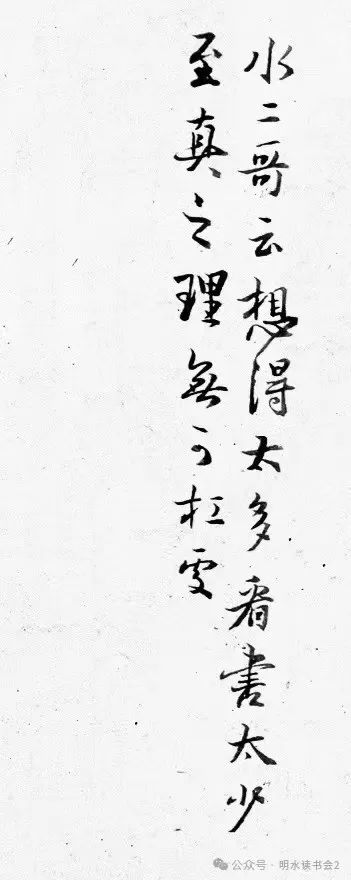 水二哥云想得太多看書太少
至真之理無可杠雯
公众号 · 明水读书会2